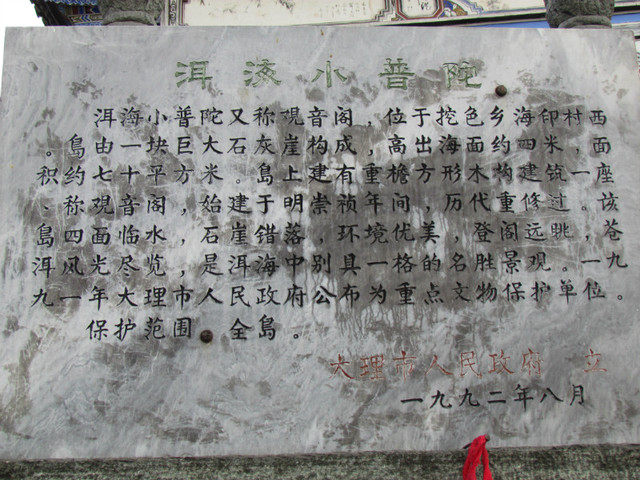 洱海小普陀
洱海小普陀又称观音阁，位于挖色乡海印村西
。岛由一块巨大石灰崖构成，高出海面约四米，面
积约七十平方米。岛上建有重檐方形木构建筑一座
、称观音阁，始建于明崇祯年间，历代重修过。该
岛四面临水，石崖错落，环境优美，登阁远眺，苍
洱风光尽览，是洱海中别具一格的名胜景观。一九
九一年大理市人民政府公布为重点文物保护单位。
保护范围 全岛。
大理市人民政府 立
一九九二年八月